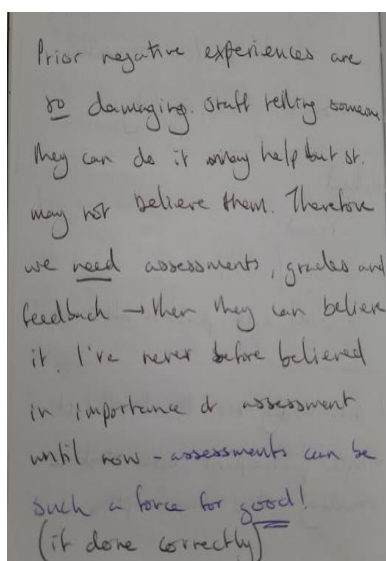 Prior negative experiences are
so damaging. Staff telling someone
they can do it may help but st.
may not believe them. Therefore
we need assessments, grades and
feedback → then they can believe
it. I've never before believed
in importance of assessment
until now - assessments can be
such a force for good!
(if done correctly)